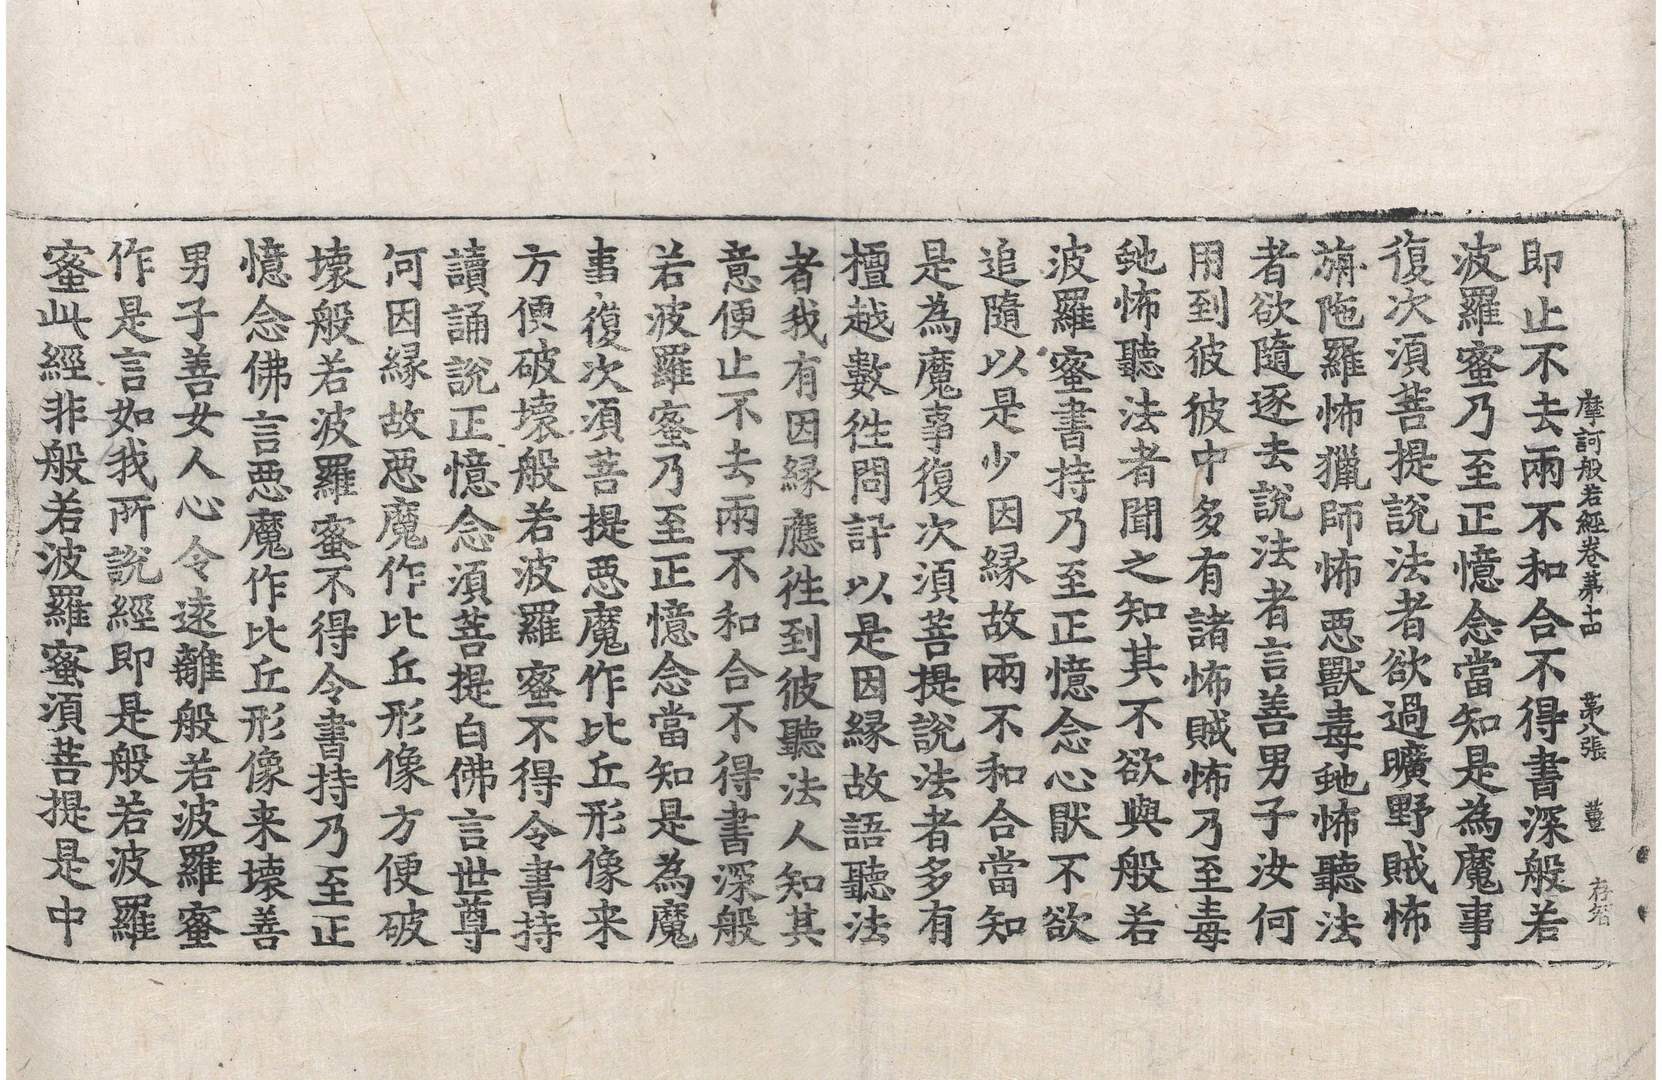 摩訶般若經卷苐十四　苐八張　薑　存智
即止不去兩不和合不得書深般若
波羅蜜乃至正憶念當知是為魔事
復次湏菩提說法者欲過曠野賊怖
旃陁羅怖獵師怖惡獸毒虵怖聽法
者欲隨逐去說法者言善男子汝何
用到彼彼中多有諸怖賊怖乃至毒
虵怖聽法者聞之知其不欲與般若
波羅蜜書持乃至正憶念心猒不欲
追隨以是少因緣故兩不和合當知
是為魔事復次湏菩提說法者多有
檀越數徃問訊以是因緣故語聽法
者我有因緣應徃到彼聽法人知其
意便止不去兩不和合不得書深般
若波羅蜜乃至正憶念當知是為魔
事復次湏菩提惡魔作比丘形像来
方便破壞般若波羅蜜不得令書持
讀誦說正憶念湏菩提白佛言世尊
何因緣故惡魔作比丘形像方便破
壞般若波羅蜜不得令書持乃至正
憶念佛言惡魔作比丘形像来壞善
男子善女人心令遠離般若波羅蜜
作是言如我所說經即是般若波羅
蜜此經非般若波羅蜜湏菩提是中